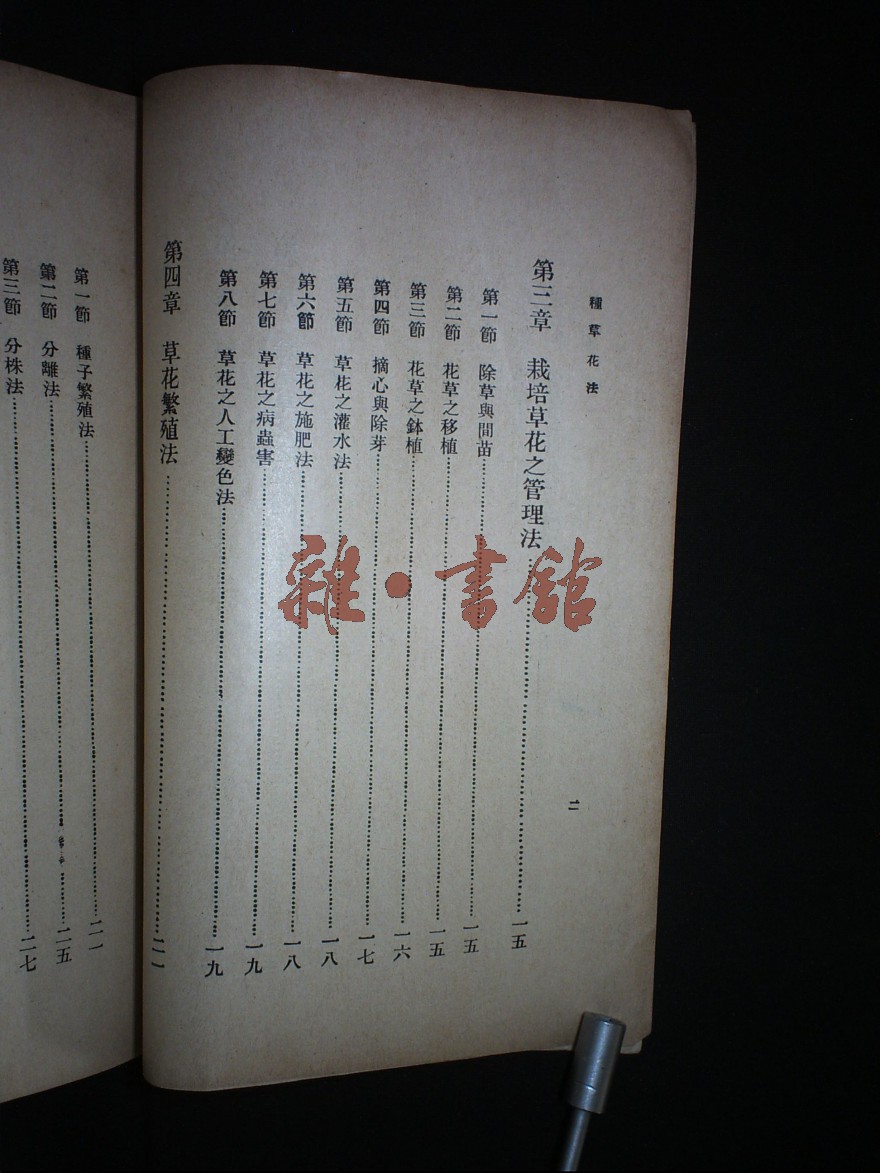 種草花法
二
第三章 栽培草花之管理法……一五
第一節 除草與間苗……一五
第二節 花草之移植……一五
第三節 花草之鉢植……一六
第四節 摘心與除芽……一七
第五節 草花之灌水法……一八
第六節 草花之施肥法……一八
第七節 草花之病蟲害……一九
第八節 草花之人工變色法……一九
第四章 草花繁殖法……二一
第一節 種子繁殖法……二一
第二節 分離法……二五
第三節 分株法……二七
雜·書館